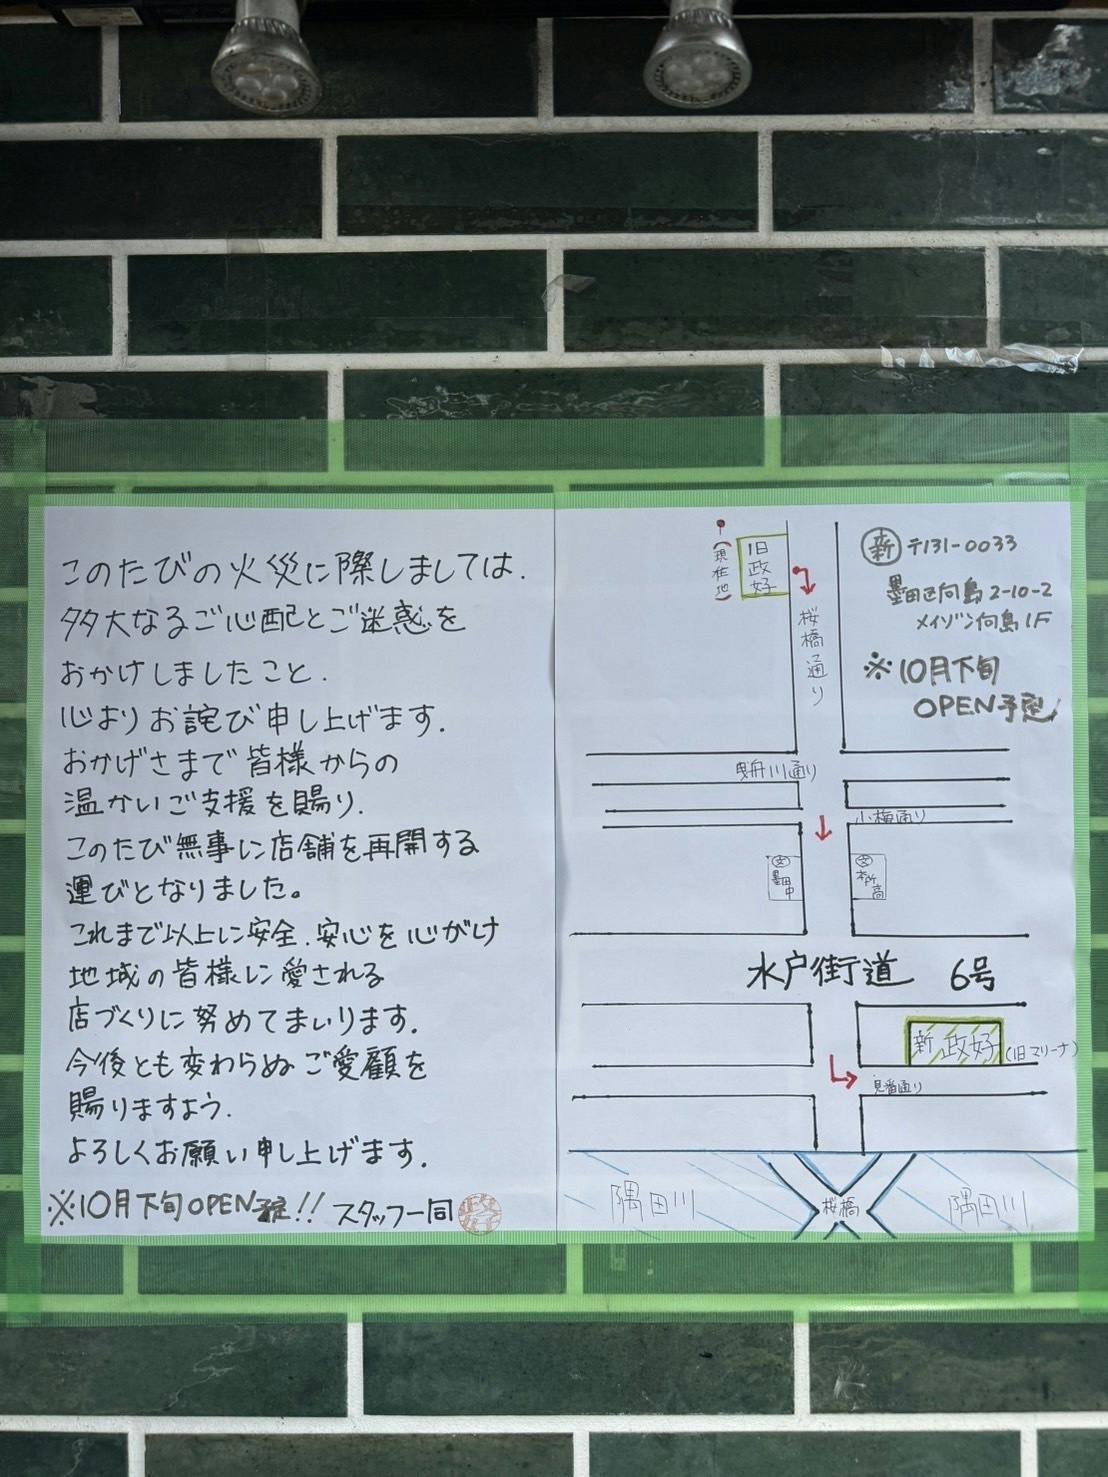 このたびの火災に際しましては、
多大なるご心配とご迷惑を
おかけしましたこと、
心よりお詫び申し上げます。
おかげさまで皆様からの
温かいご支援を賜り、
このたび無事に店舗を再開する
運びとなりました。
これまで以上に安全、安心を心がけ
地域の皆様に愛される
店づくりに努めてまいります。
今後とも変わらぬご愛顧を
賜りますよう、
よろしくお願い申し上げます。
※10月下旬OPEN予定!! スタッフ一同
(現在地)
旧政好
桜橋通り
新 〒131-0033
墨田区向島2-10-2
メイゾン向島1F
※10月下旬
OPEN予定
曳舟川通り
小梅通り
文 墨田中
文 本所高
水戸街道 6号
新 政好 (旧マリーナ)
見番通り
隅田川
桜橋
隅田川